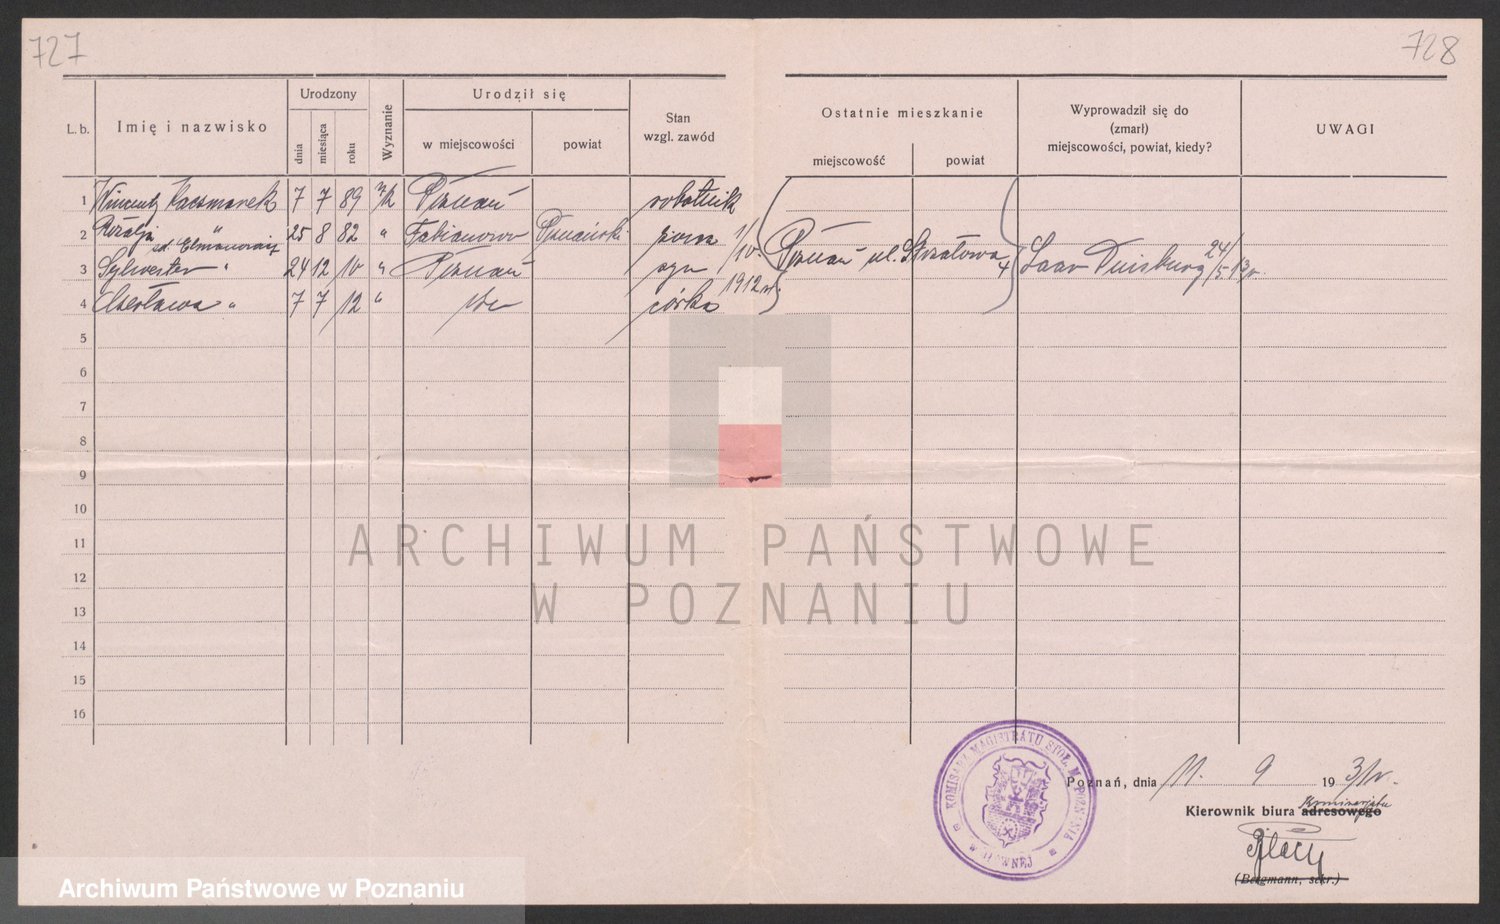 727
728
L. b.
Imię i nazwisko
Urodzony
dnia
miesiąca
roku
Wyznanie
Urodził się
w miejscowości
powiat
Stan
wzgl. zawód
Ostatnie mieszkanie
miejscowość
powiat
Wyprowadził się do
(zmarł)
miejscowości, powiat, kiedy?
UWAGI
1 Wincenty Kaczmarek 7 7 89 Poznań robotnik
2 Rozalja " 25 8 82 " Fabianowo Poznański żona 1/10.
zd. Elmanowicz
Poznań ul. Strzałowa 4 Laar Duisburg 24/5 13 r.
3 Sylwester " 24 12 10 " Poznań syn
1912 r.
4 Czesława " 7 7 12 " córka
5
6
7
8
9
10
11
12
13
14
15
16
ARCHIWUM PAŃSTWOWE
W POZNANIU
KOMISARZ MAGISTRATU STOŁ. M. POZNANIA
W GŁÓWNEJ
Poznań, dnia 11. 9 1931 r.
Kierownik biura adresowego
Komisarjatu
(Bergmann, sekr.)
Archiwum Państwowe w Poznaniu